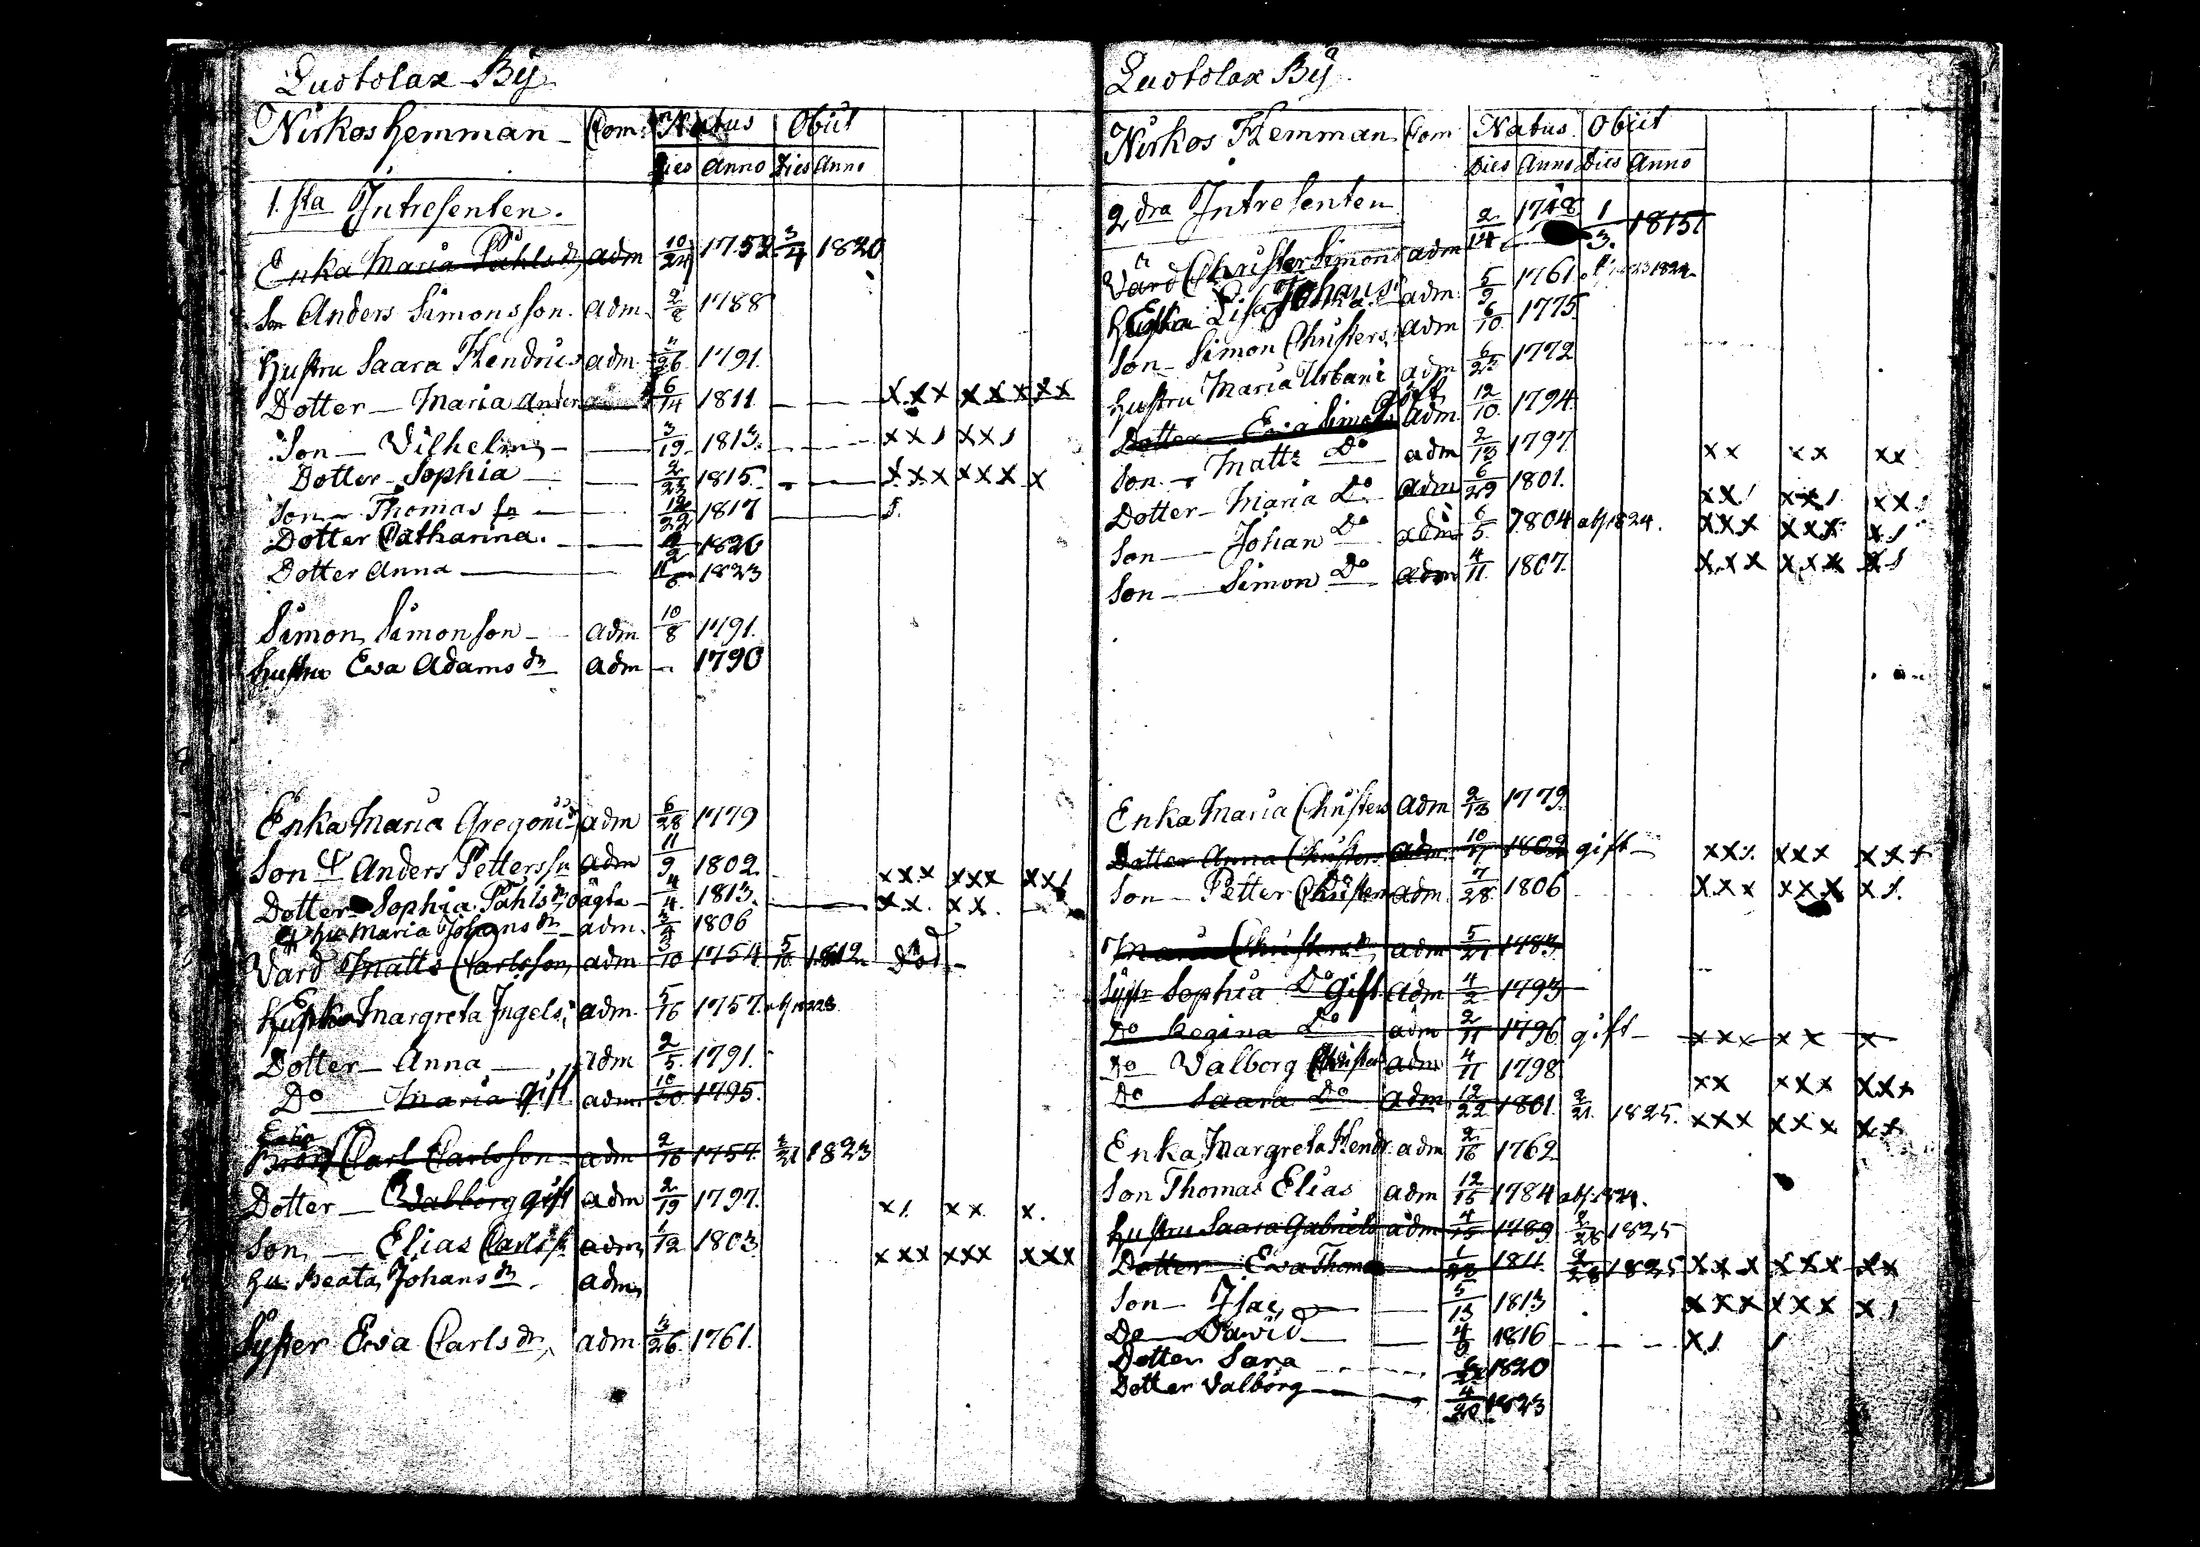 Luotolax By
Nirkos Hemman Com: Natus Obiit
Dies Anno Dies Anno
1.sta Intresenten.
Enka Maria Påhls dr adm 10/24 1752 3/4 1820
Son Anders Simonsson. adm 1788
Hustru Saara Hendrics adm 1791.
Dotter Maria Anders 6/14 1811 xxx xxx xx
Son Vilhelm 3/19 1813. xx/ xx/
Dotter Sophia 2/23 1815 xxx xxx x
Son Thomas 12/22 1817
Dotter Catharina. 1820
Dotter Anna 1823
Simon Simonson adm 10/8 1791.
Hustru Ewa Adams dr adm 1790
Enka Maria Gregorii dr adm 6/28 1779
Son Anders Petterss n adm 11/9 1802 xxx xxx xx/
Dotter Sophia Påhls dr oägta 4/4 1813. xx. xx.
Hu Maria Johans dr adm. 1806
Värd Matts Carlsson, adm 3/10 1754 5/10 1812 död
Enka Margreta Ingels, adm. 5/16 1757.
Dotter Anna adm 2/5 1791.
Do Maria gift adm 10/30 1795.
Enkl
Carl Carlsson adm 2/16 1757 2/21 1823
Dotter Walborg gift adm 2/19 1797. x/. xx. x.
Son Elias Carlss adm 1/12 1803 xxx xxx xxx
Hu Beata Johans dr. adm
Syster Ewa Carls dr, adm 3/26 1761.
Luotolax By
Nirkos Hemman Com Natus Obiit
Dies Anno Dies Anno
2 dra Intresenten
Värd Christer Simons adm 2/14 1748 1/3. 1815
Enka Lisa Johans adm 5/9 1761.
Son Simon Christers adm 6/10 1775.
Hustru Maria Urbani adm 6/23 1772
Dotter Ewa Simons gift adm 12/10 1794.
Son Matts Do adm 2/13 1797. xx xx xx
Dotter Maria Do adm 6/29 1801. xx/ xx/ xx/
Son Johan Do adm 6/5 1804 afs 1824. xxx xxx x/
Son Simon Do adm 4/11 1807. xxx xxx x/
Enka Maria Christers adm 2/13 1779.
Dotter Anna Christers adm 1802 gift xx/. xxx xxx
Son Petter Christers adm. 7/28 1806 xxx xxx x/.
Maria Christers dr adm 5/27 1783.
Syst Sophia Do gift adm 4/2 1793
Do Regina Do adm 2/11 1796 gift xxx xx x
Do Valborg Christers adm 4/11 1798 xx xxx xxx
Do Saara Do adm 12/22 1801. 2/21. 1825. xxx xxx xx
Enka Margreta Hendr. adm 2/16 1762
Son Thomas Elias adm 12/15 1784 afs. 1824.
Hustru Saara Gabriels adm 4/15 1789 2/28 1825
Dotter Ewa Thomas 1811. 2/28 1825 xxx xxx xx
Son Isac 5/13 1813 xxx xxx x/
Do David 1816 x/ /
Dotter Sara 1820
Dotter Valborg 4/20 1823